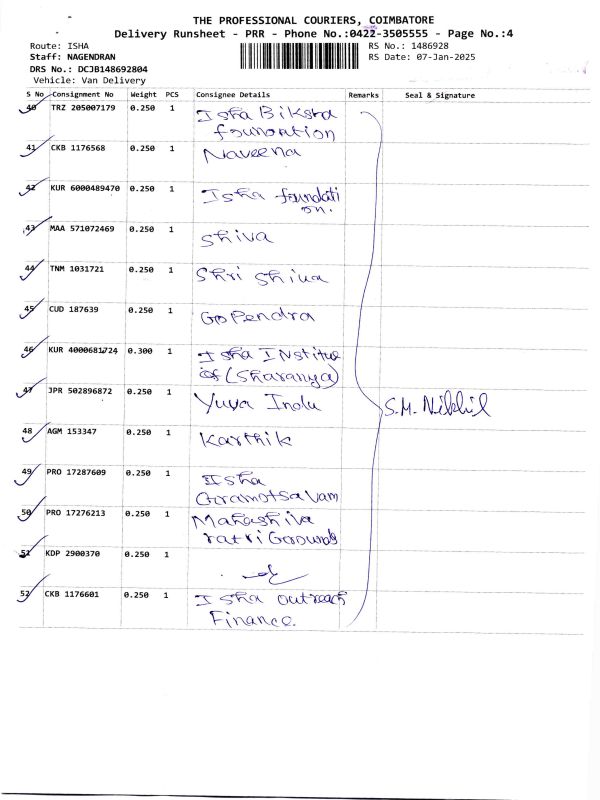 THE PROFESSIONAL COURIERS, COIMBATORE
Delivery Runsheet - PRR - Phone No.:0422-3505555 - Page No.:4
Route: ISHA
RS No.: 1486928
Staff: NAGENDRAN
RS Date: 07-Jan-2025
DRS No.: DCJB148692804
Vehicle: Van Delivery
S No Consignment No Weight PCS Consignee Details Remarks Seal & Signature
40 TRZ 205007179 0.250 1 Isha Biksha
foundation
41 CKB 1176568 0.250 1 Naveena
42 KUR 6000489470 0.250 1 Isha foundati
on.
43 MAA 571072469 0.250 1 Shiva
44 TNM 1031721 0.250 1 Shri Shiva
45 CUD 187639 0.250 1 Gopendra
46 KUR 4000681724 0.300 1 Isha Institue
of (Sharanya)
47 JPR 502896872 0.250 1 Yuva Indu
S.M. Nikhil
48 AGM 153347 0.250 1 Karthik
49 PRO 17287609 0.250 1 Isha
Gramotsavam
50 PRO 17276213 0.250 1 Mahashiva
ratri Grounds
51 KDP 2900370 0.250 1
52 CKB 1176601 0.250 1 Isha outreach
Finance.